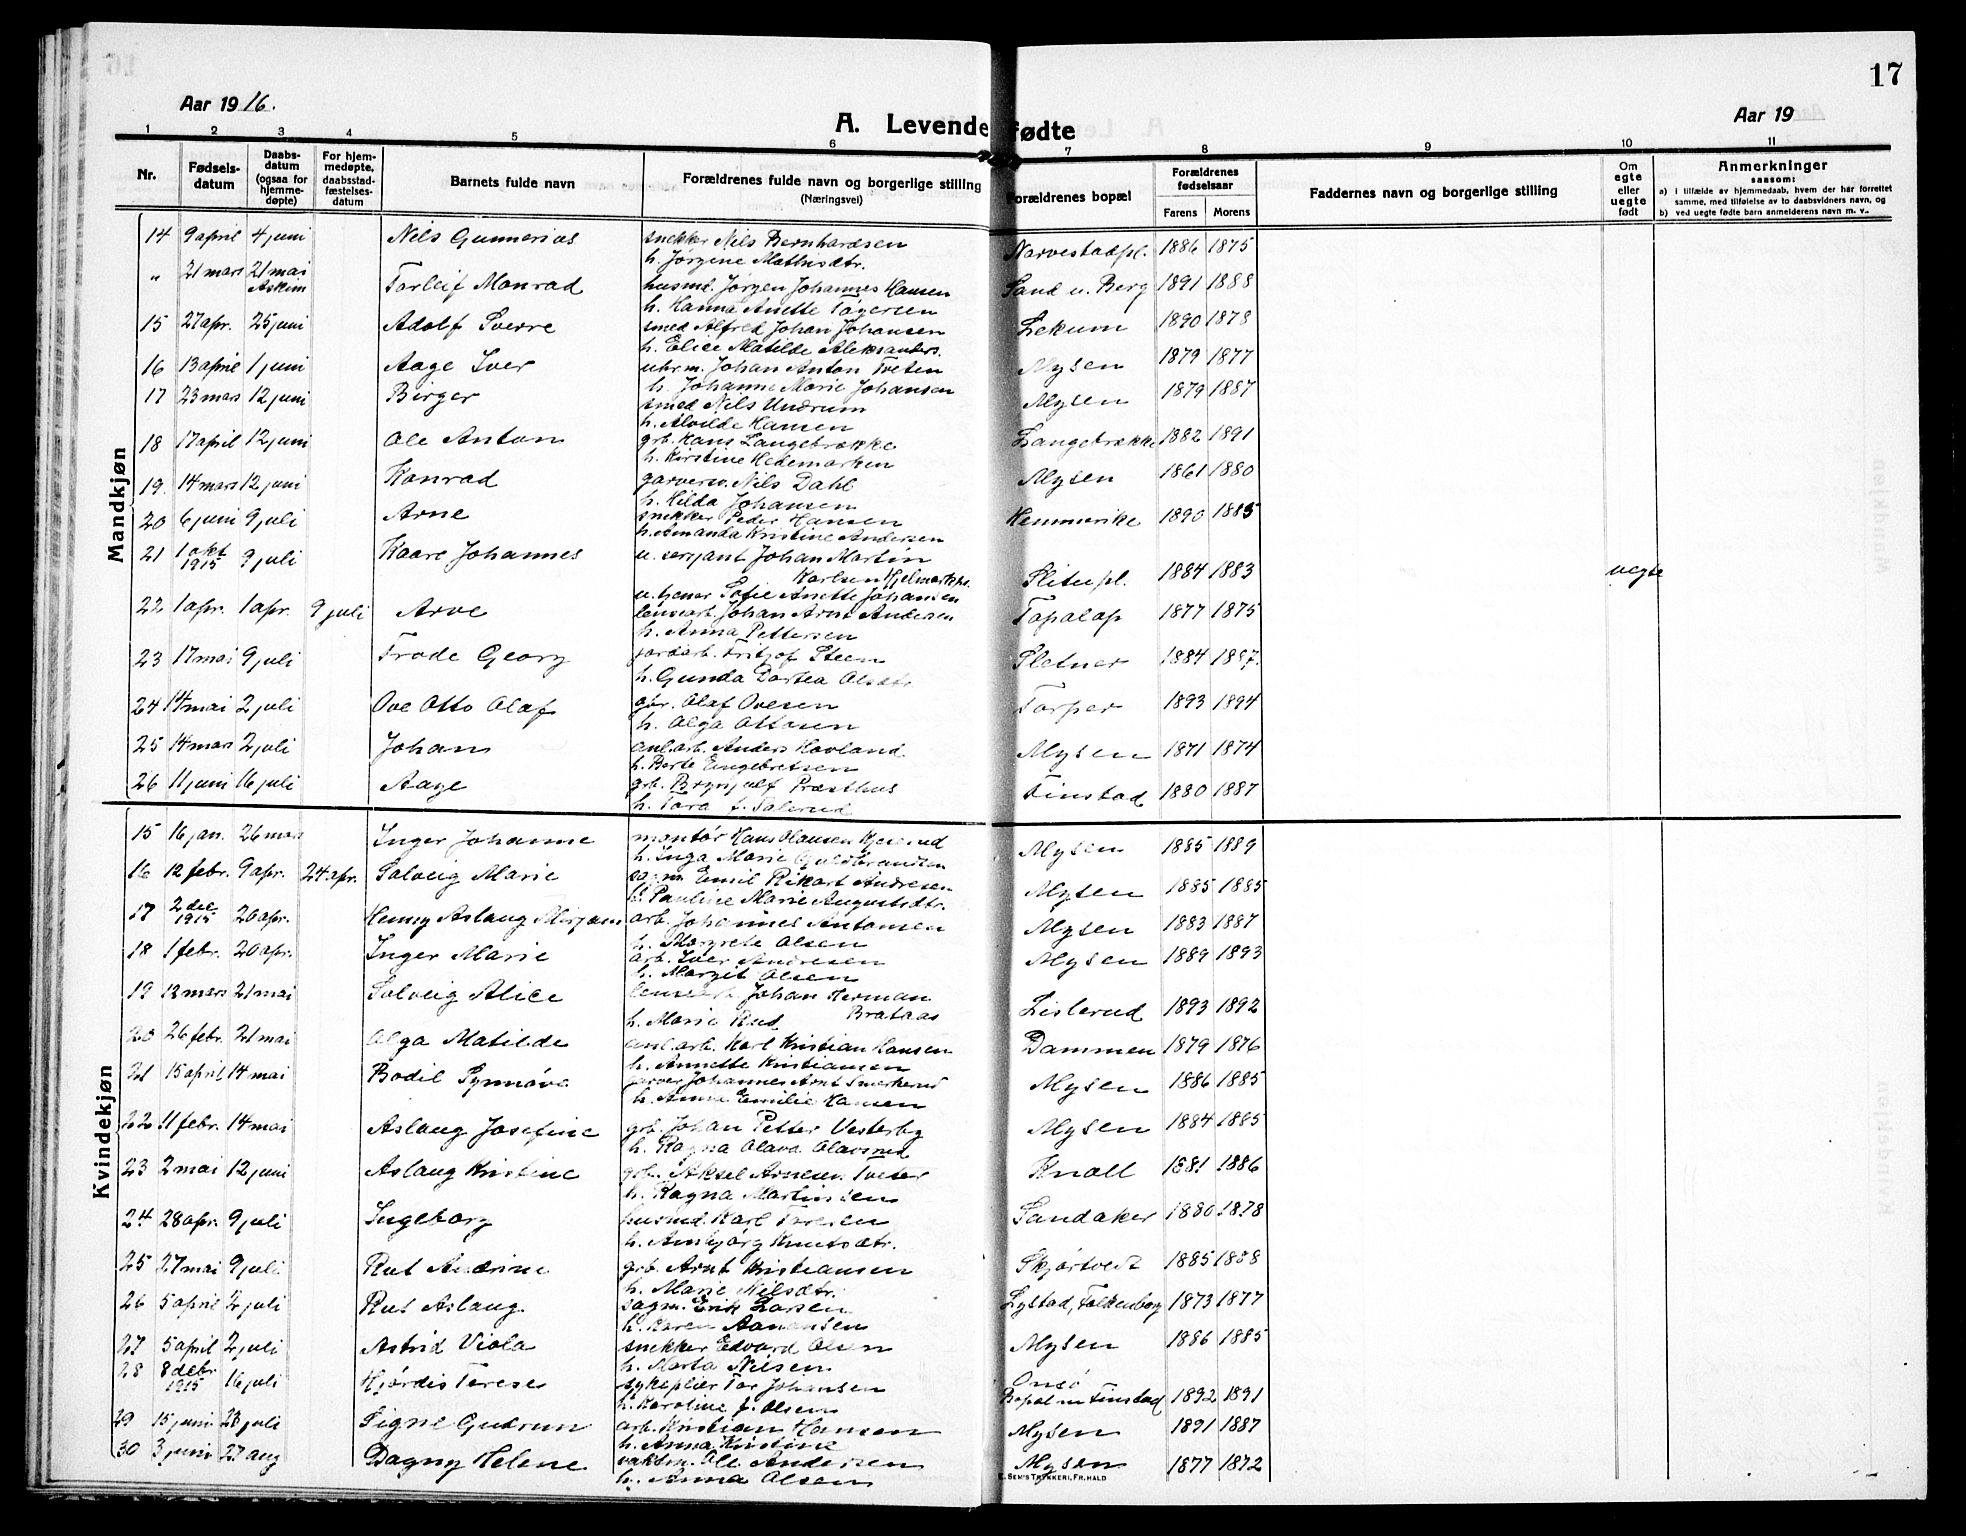 17
Aar 1916.
Aar 19
A. Levendefødte
1 2 3 4 5 6 7 8 9 10 11
Nr. Fødselsdatum Daabsdatum (ogsaa for hjemmedøpte) For hjemmedøpte, daabsstadfæstelsesdatum Barnets fulde navn Forældrenes fulde navn og borgerlige stilling (Næringsvei) Forældrenes bopæl Forældrenes fødselsaar Farens Morens Faddernes navn og borgerlige stilling Om egte eller uegte født Anmerkninger saasom:
a) i tilfælde av hjemmedaab, hvem der har forrettet samme, med tilføielse av to daabsvidners navn, og
b) ved uegte fødte barn anmelderens navn m. v..
Mandkjøn
14 9 april 4 juni Nils Gunnerius snekker Nils Bernhardsen Narvestadpl. 1886 1875
h. Jørgine Mathisdtr.
" 21 mars 21 mai Askim Torleif Monrad husmd. Jørgen Johannes Hansen Sand u. Berg 1891 1888
h. Hanna Anette
15 27 apr. 25 juni Adolf Sverre smed Alfred Johan Johansen Lekum 1890 1878
h. Elice Matilde Aleksanders.
16 13 april 1 juni Aage Iver uhrm. Johan Anton Tveten Mysen 1879 1877
h. Johanne Marie Johansen
17 23 mars 12 juni Birger smed Nils Undrum Mysen 1879 1887
h. Alvilde Hansen
18 17 april 12 juni Ole Anton grb. Hans Langebrække Langebrække 1882 1891
h. Kirstine Hedemarken
19. 14 mars 12 juni Konrad garversv. Nils Dahl Mysen 1861 1880
h. Hilda Johansen
20 6 juni 9 juli Arne snekker Peder Hansen Hemmerike 1890 1885
h. Amanda Kristine Andersen
21 1 okt 1915 9 juli Kaare Johannes u. serjant Johan Martin
Karlsen Slitupl. 1884 1883 uegte
u. Sofie Anette Johansen
22 1 apr. 1 apr. 9 juli Arve Johan Arnt Andersen Topalap 1877 1875
h. Anna Pettersen
23 17 mai 9 juli Frode Georg jordarb. Fritjof Steen Sletner 1884 1887.
h. Gunda Dortea Olsdtr.
24 14 mai 2 juli Ove Otto Olaf gbr. Olaf Ovesen Torper 1893 1894
h. Olga Ottosen
25 14 mars 2 juli Johan anl.arb. Anders Hovland Mysen 1871 1874
h. Berte Engebretsen
26 11 juni 16 juli Aage grb. Brynjulf Præsthus Finstad 1880 1887
h. Tora f. Salerud
Kvindekjøn
15 16 jan. 26 mars Inger Johanne montør Hans Olausen Mysen 1885 1889
h. Inga Marie Guldbrandsen
16 12 febr. 9 apr. 24 apr. Solveig Marie sagm. Emil Rikart Andresen Mysen 1885 1885
h. Pauline Marie Augustsdtr.
17 2 dec 1915 20 apr. Henny Aslaug Mirjam arb. Johannes Antonsen Mysen 1883 1887
h. Margrete Olsen
18 1 febr. 20 apr. Inger Marie arb. Iver Andresen Mysen 1889 1893
h. Margit Olsen
19 12 mars 21 mai Solveig Alice Johan Herman
Brataas Lislerud 1893 1892
h. Marie Rud
20 26 febr. 21 mai Olga Matilde anl.arb. Karl Kristian Hansen Dammen 1879 1876
h. Annette Kristiansen
21 15 april 14 mai Bodil Synnøve garver Johannes Arnt Smerkerud Mysen 1886 1885
h. Anna Emilie Hansen
22 11 febr. 14 mai Aslaug Josefine grb. Johan Petter Vesterby Mysen 1884 1885
h. Ragna Olava Olavsrud
23 2 mai 12 juni Aslaug Kristine grb. Aksel Arnesen Tveter Knoll 1881 1886
h. Ragna Martinsen
24 28 apr. 9 juli Ingeborg husmd. Karl Toresen Sandaker 1880 1878
h. Annbjørg Knutsdtr.
25 27 mai 9 juli Rut Andrine grb. Arnt Kristiansen Skjørtvedt 1885 1888
h. Marie Nilsdtr.
26 5 april 2 juli Rut Aslaug sagm. Erik Larsen Lystad, Folkenborg 1873 1877
h. Karen Aanonsen
27 5 april 2 juli Astrid Viola snekker Edvard Olsen Mysen 1886 1885
h. Marta Nilsen
28 8 debr 1915 16 juli Hjørdis Terese sykepleier Tor Johansen Onsö Bopæl nu Finstad 1892 1891
h. Karoline f. Olsen
29 15 juni 23 juli Signe Gudrun arb. Kristian Hansen Mysen 1891 1887
h. Anna Kristine
30 3 juni 27 aug Dagny Helene vaktm. Ole Andersen Mysen 1877 1872
h. Anna Olsen
E. SEM'S TRYKKERI, FR.HALD